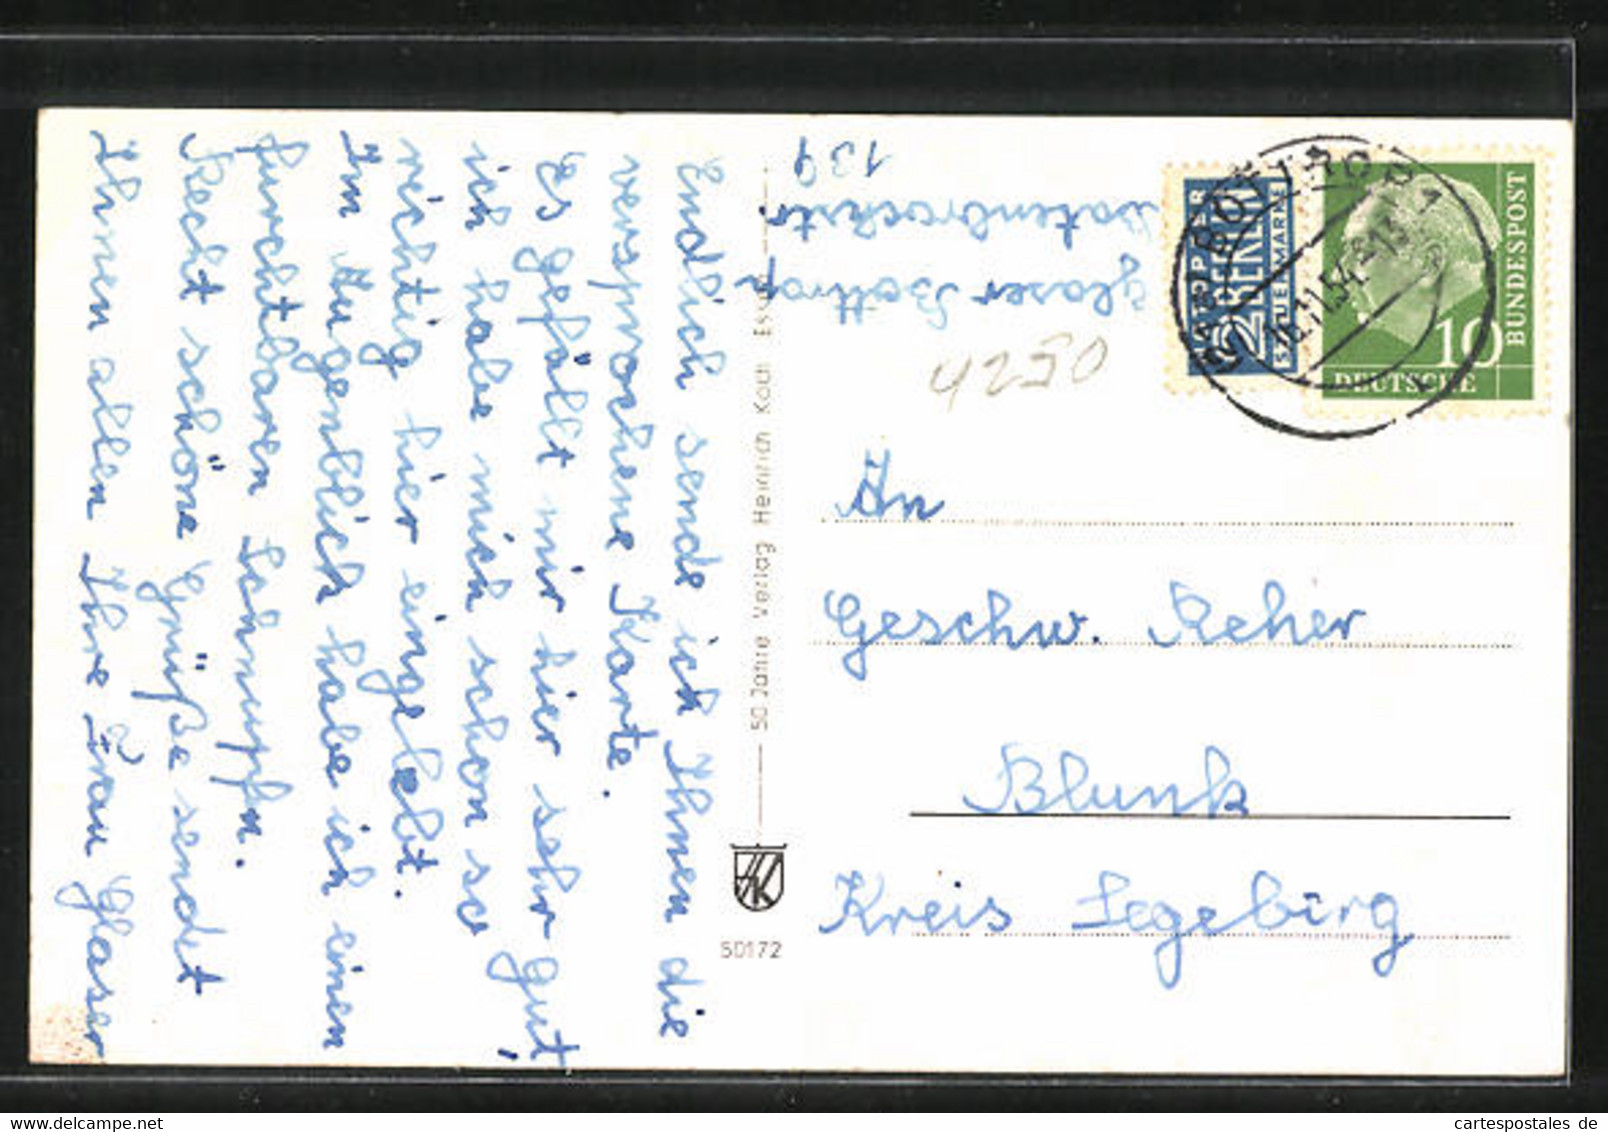 Endlich sende ich Ihnen die
versprochene Karte.
Es gefällt mir hier sehr gut,
ich habe mich schon so
richtig hier eingelebt.
Im Augenblick habe ich einen
furchtbaren Schnupfn.
Recht schöne Grüße sendet
Ihnen allen Ihre Frau Glaser
Glaser Bottrop
139
4250
50 Jahre Verlag Heinrich Koch Essen
HK
50172
NOTOPFER
2 BERLIN
STEUERMARKE
DEUTSCHE
BUNDESPOST
10
BOTTROP
An
Geschw. Reher
Blunk
Kreis Segeberg
cartespostales.de